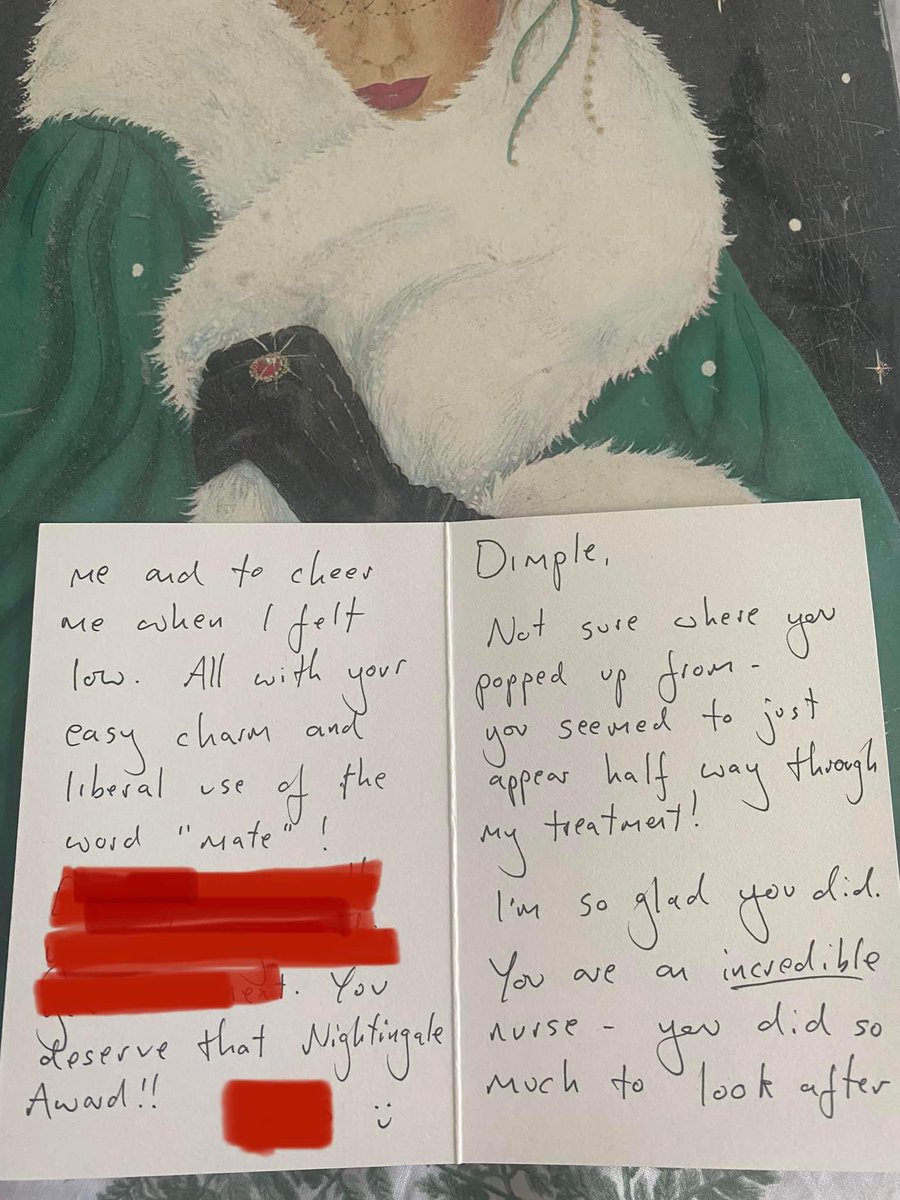 Dimple,
Not sure where you
popped up from -
you seemed to just
appear half way through
my treatment!
I'm so glad you did.
You are an incredible
nurse - you did so
much to look after
me and to cheer
me when I felt
low. All with your
easy charm and
liberal use of the
word "mate" !
You
deserve that Nightingale
Award!!